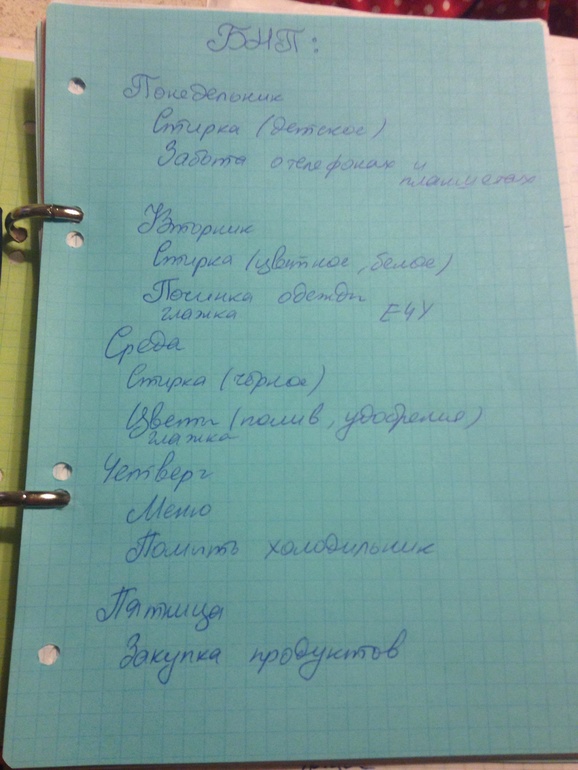 БНП:
Понедельник
Стирка (детское)
Забота о телефонах и
планшетах
Вторник
Стирка (цветное, белое)
Починка одежды
глажка
Среда
Стирка (чёрное)
Цветы (полив, удобрения)
глажка
Четверг
Меню
Помыть холодильник
Пятница
Закупка продуктов